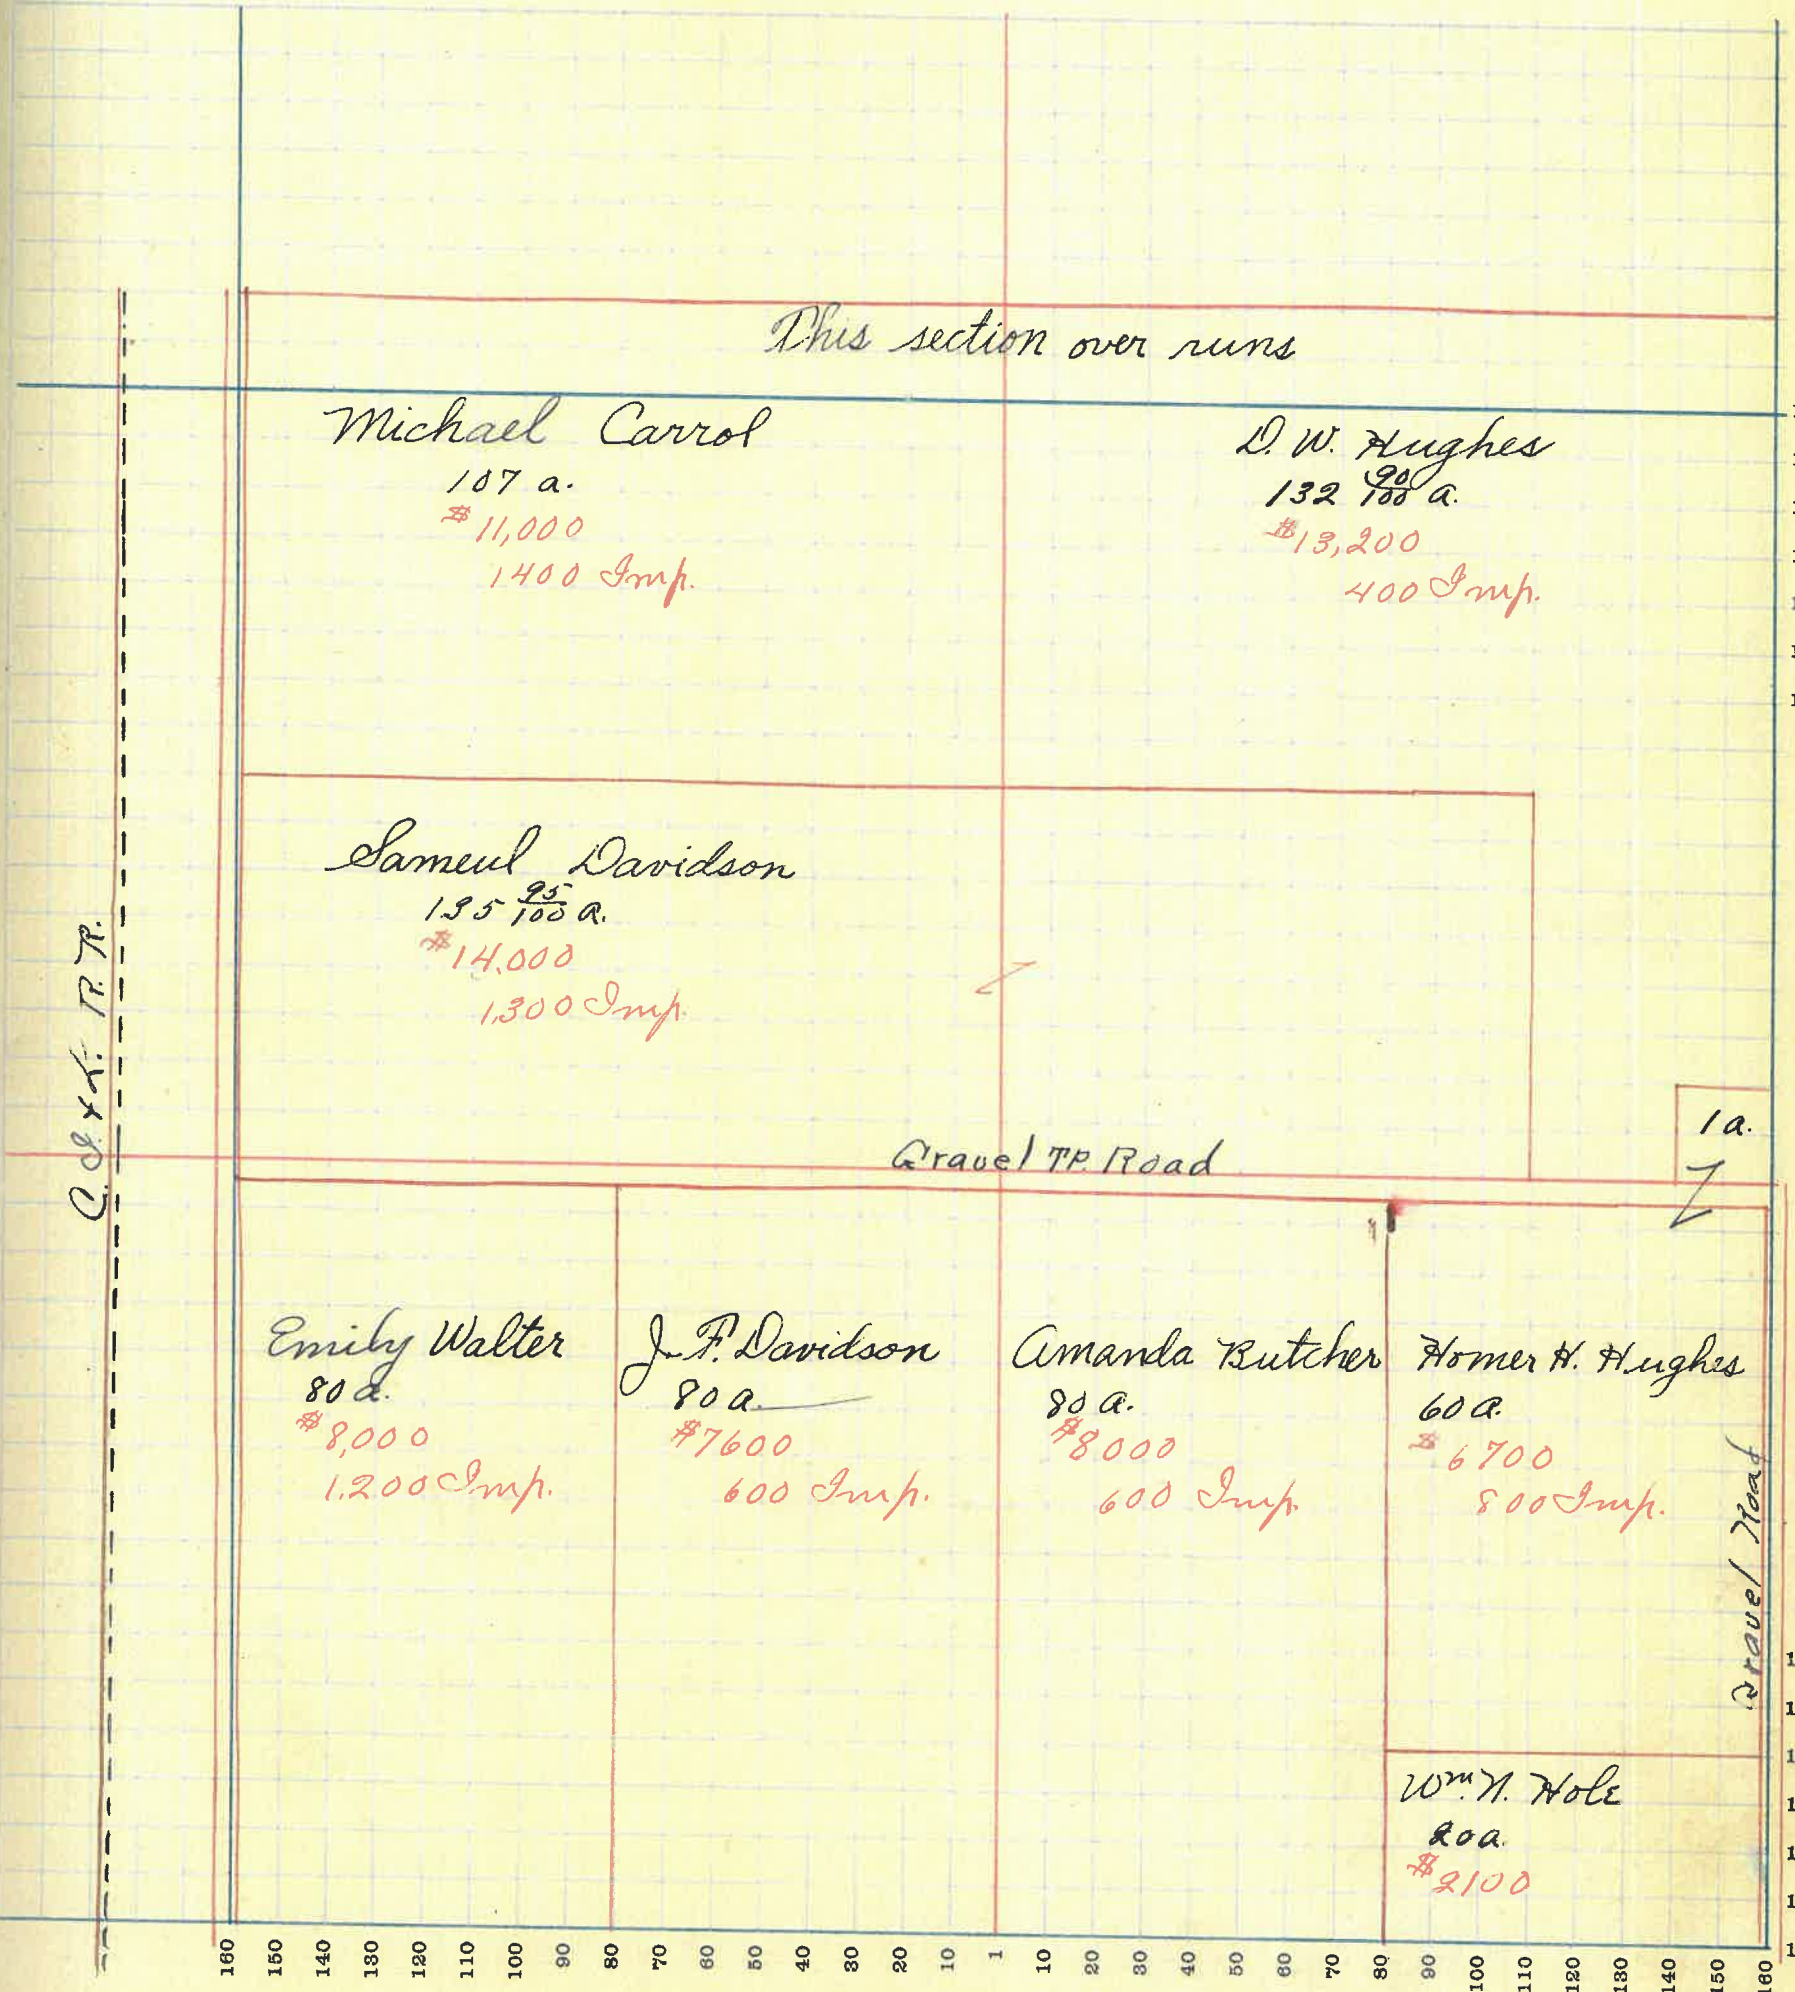 This section over runs
Michael Carrol
107 a.
$11,000
1400 Imp.
D. W. Hughes
132 90/100 a.
$13,200
400 Imp.
Sameul Davidson
135 95/100 a.
$14.000
1,300 Imp.
C. I. & L. R. R.
1 a.
Gravel TP. Road
Emily Walter
80 a.
$8,000
1.200 Imp.
J. F. Davidson
80 a.
$7600
600 Imp.
Amanda Butcher
80 a.
$8000
600 Imp.
Homer H. Hughes
60 a.
$6700
800 Imp.
Gravel Road
Wm. N. Hole
20 a.
$2100
160 150 140 130 120 110 100 90 80 70 60 50 40 30 20 10 1 10 20 30 40 50 60 70 80 90 100 110 120 130 140 150 160